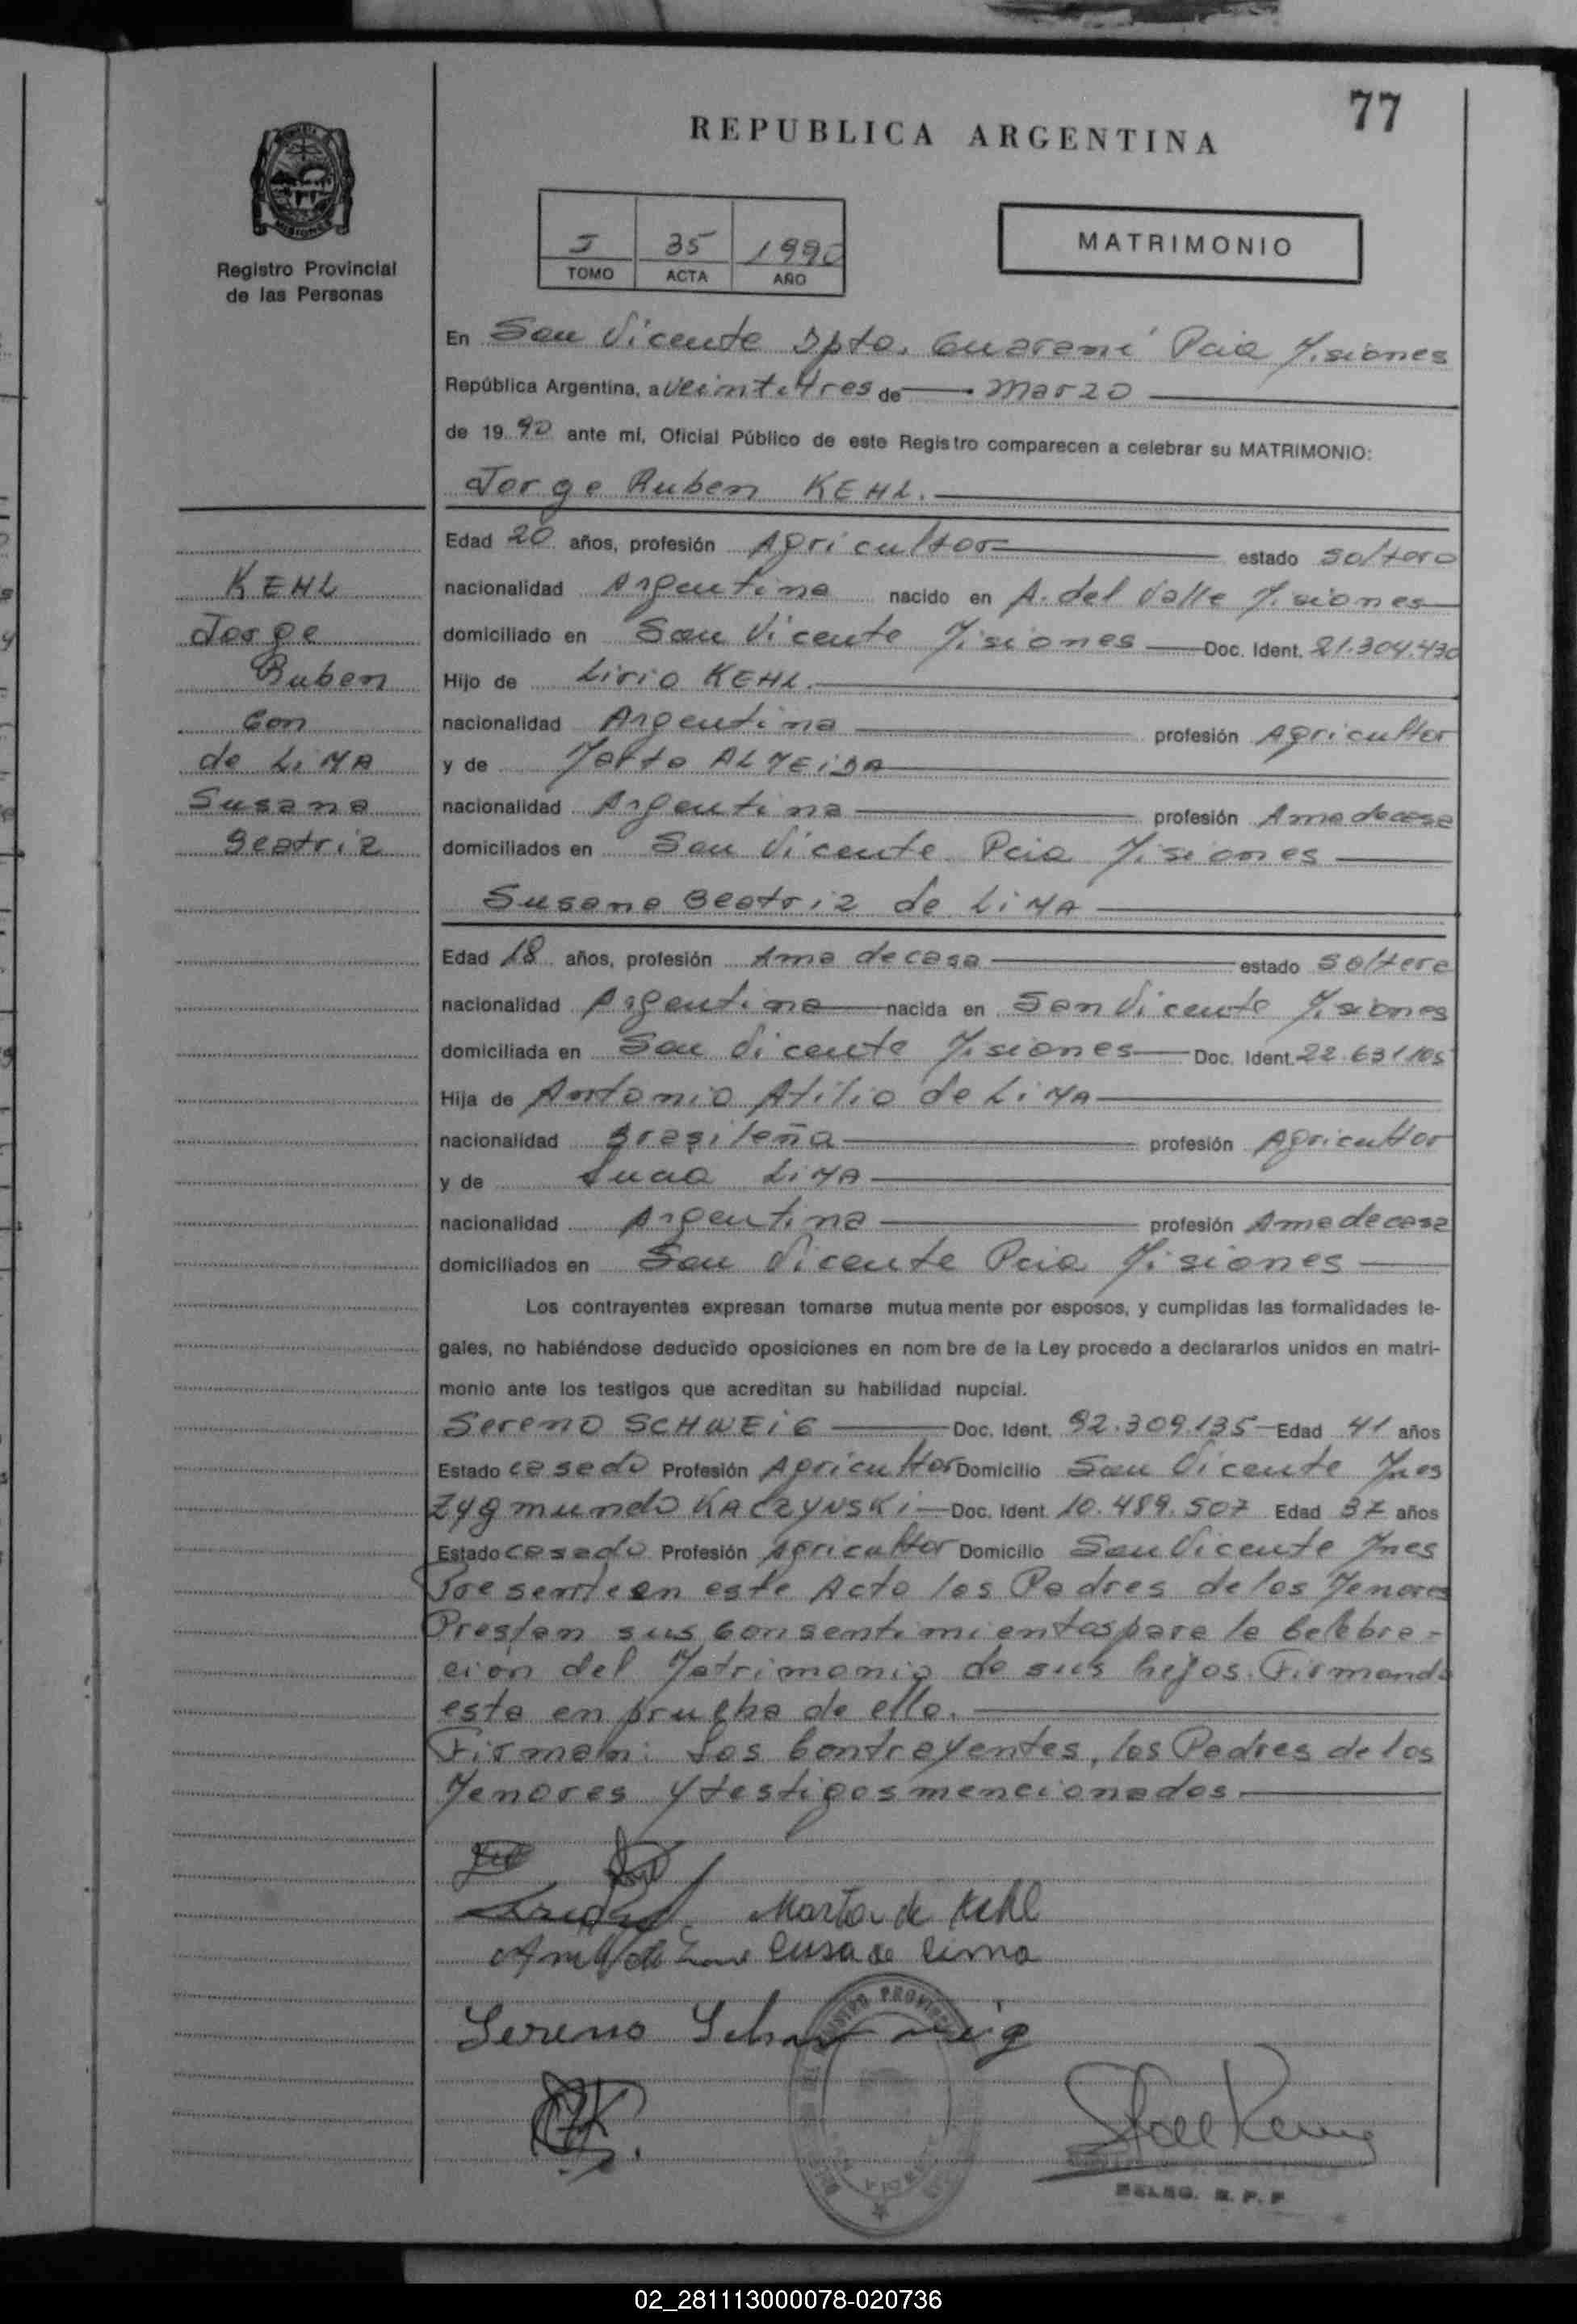 77
REPUBLICA ARGENTINA
Registro Provincial
de las Personas
I 35 1990
TOMO ACTA AÑO
MATRIMONIO
En San Vicente Dpto. Guaraní Pcia Misiones
República Argentina, a veintitres de marzo
de 1990 ante mí, Oficial Público de este Registro comparecen a celebrar su MATRIMONIO:
Jorge Ruben KEHL.
Edad 20 años, profesión Agricultor estado soltero
nacionalidad Argentina nacido en A. del Valle Misiones
domiciliado en San Vicente Misiones Doc. Ident. 21.304.430
Hijo de Lirio KEHL.
nacionalidad Argentina profesión Agricultor
y de Marta ALMEIDA
nacionalidad Argentina profesión Ama de casa
domiciliados en San Vicente Pcia Misiones
Susana Beatriz de LIMA
Edad 18 años, profesión Ama de casa estado soltera
nacionalidad Argentina nacida en San Vicente Misiones
domiciliada en San Vicente Misiones Doc. Ident. 22.631.105
Hija de Antonio Atilio de LIMA
nacionalidad Brasileña profesión Agricultor
y de LIMA
nacionalidad Argentina profesión Ama de casa
domiciliados en San Vicente Pcia Misiones
KEHL
Jorge
Ruben
Con
de LIMA
Susana
Beatriz
Los contrayentes expresan tomarse mutuamente por esposos, y cumplidas las formalidades le-
gales, no habiéndose deducido oposiciones en nombre de la Ley procedo a declararlos unidos en matri-
monio ante los testigos que acreditan su habilidad nupcial.
Sereno SCHWEIG Doc. Ident. 92.309.135 Edad 41 años
Estado casado Profesión Agricultor Domicilio San Vicente Mnes
Zygmundo KACZYNSKI Doc. Ident. 10.489.507 Edad 37 años
Estado casado Profesión Agricultor Domicilio San Vicente Mnes
Presente en este Acto los Padres de los Menores
Prestan sus Consentimientos para la Celebra-
ción del Matrimonio de sus hijos. Firmando
esta en prueba de ello.
Firman: Los Contrayentes, los Padres de los
Menores y testigos mencionados
Marta de Kehl
Lusa de Lima
Sereno Schweig
DELEG. R. P. P
02_281113000078-020736